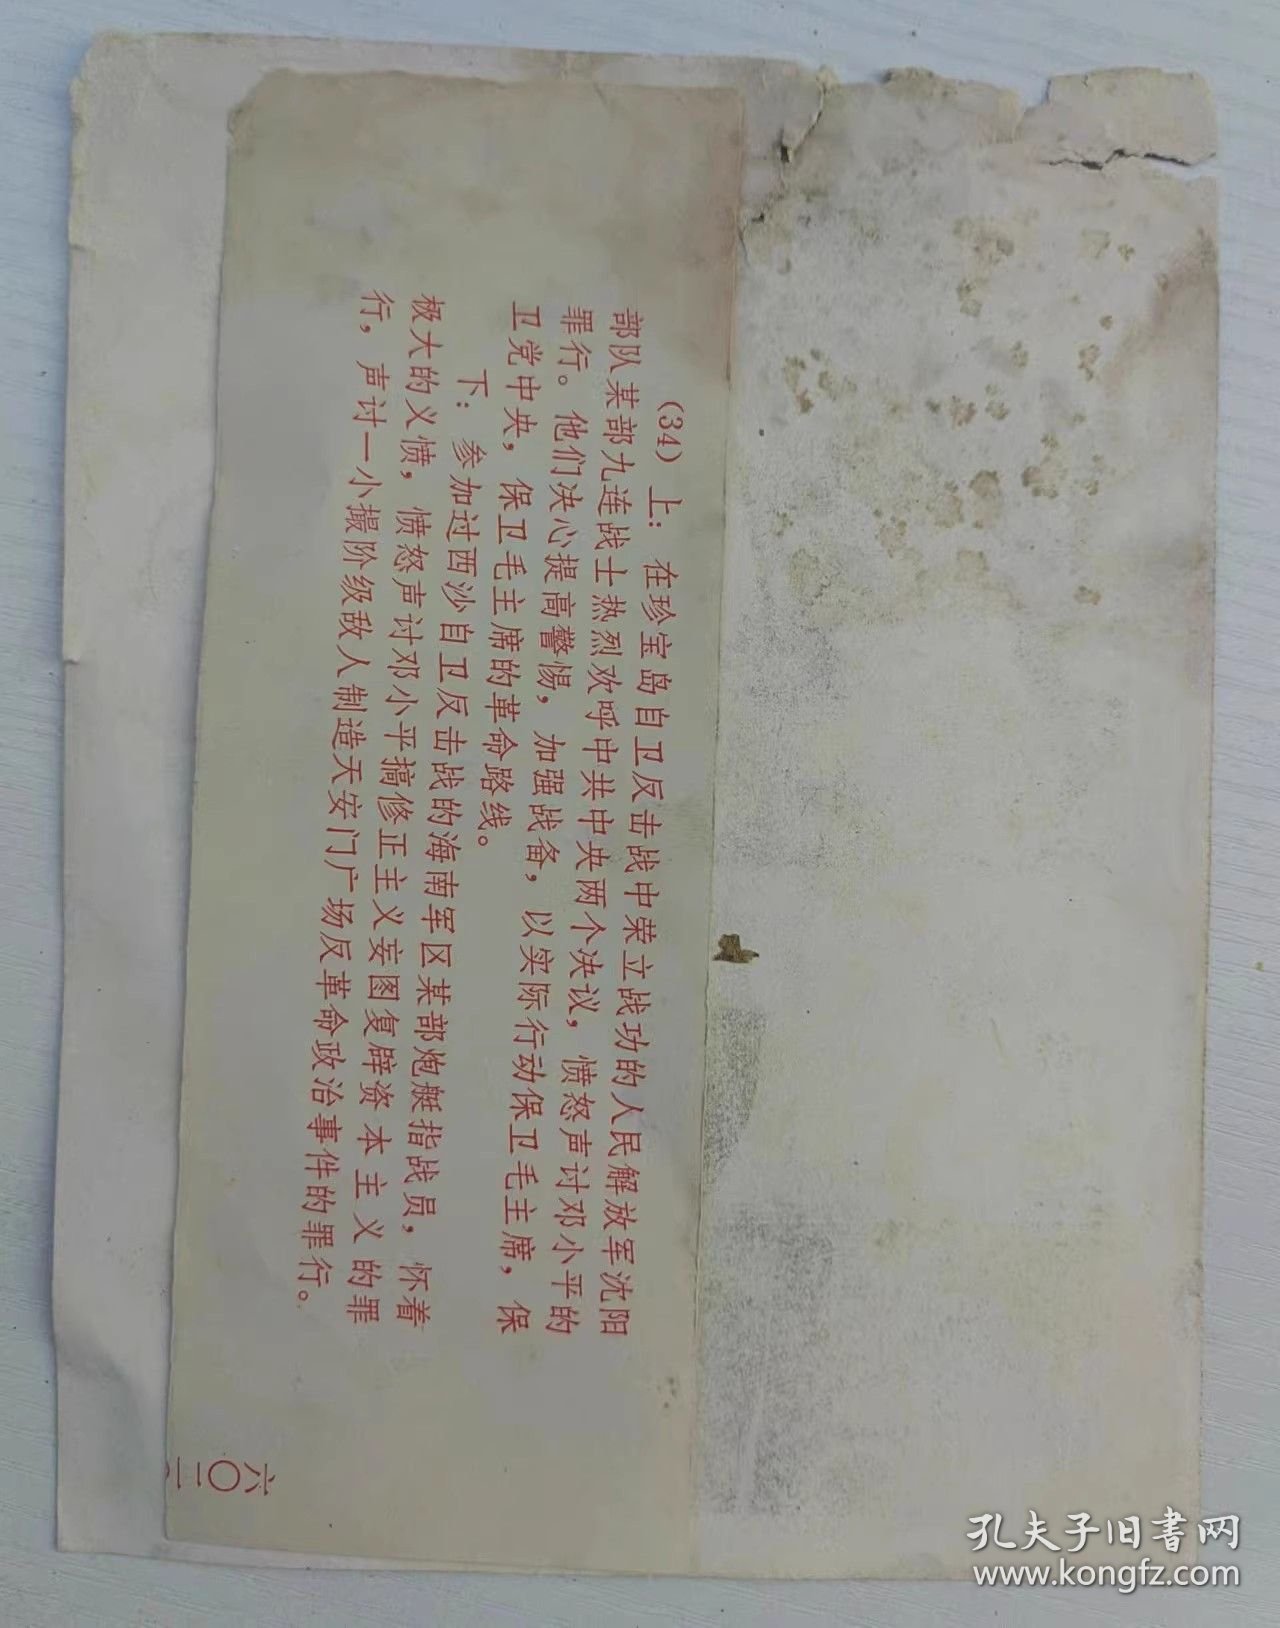 (34) 上：在珍宝岛自卫反击战中荣立战功的人民解放军沈阳
部队某部九连战士热烈欢呼中共中央两个决议，愤怒声讨邓小平的
罪行。他们决心提高警惕，加强战备，以实际行动保卫毛主席，保
卫党中央，保卫毛主席的革命路线。
下：参加过西沙自卫反击战的海南军区某部炮艇指战员，怀着
极大的义愤，愤怒声讨邓小平搞修正主义妄图复辟资本主义的罪
行，声讨一小撮阶级敌人制造天安门广场反革命政治事件的罪行。
六〇二
孔夫子旧书网
www.kongfz.com